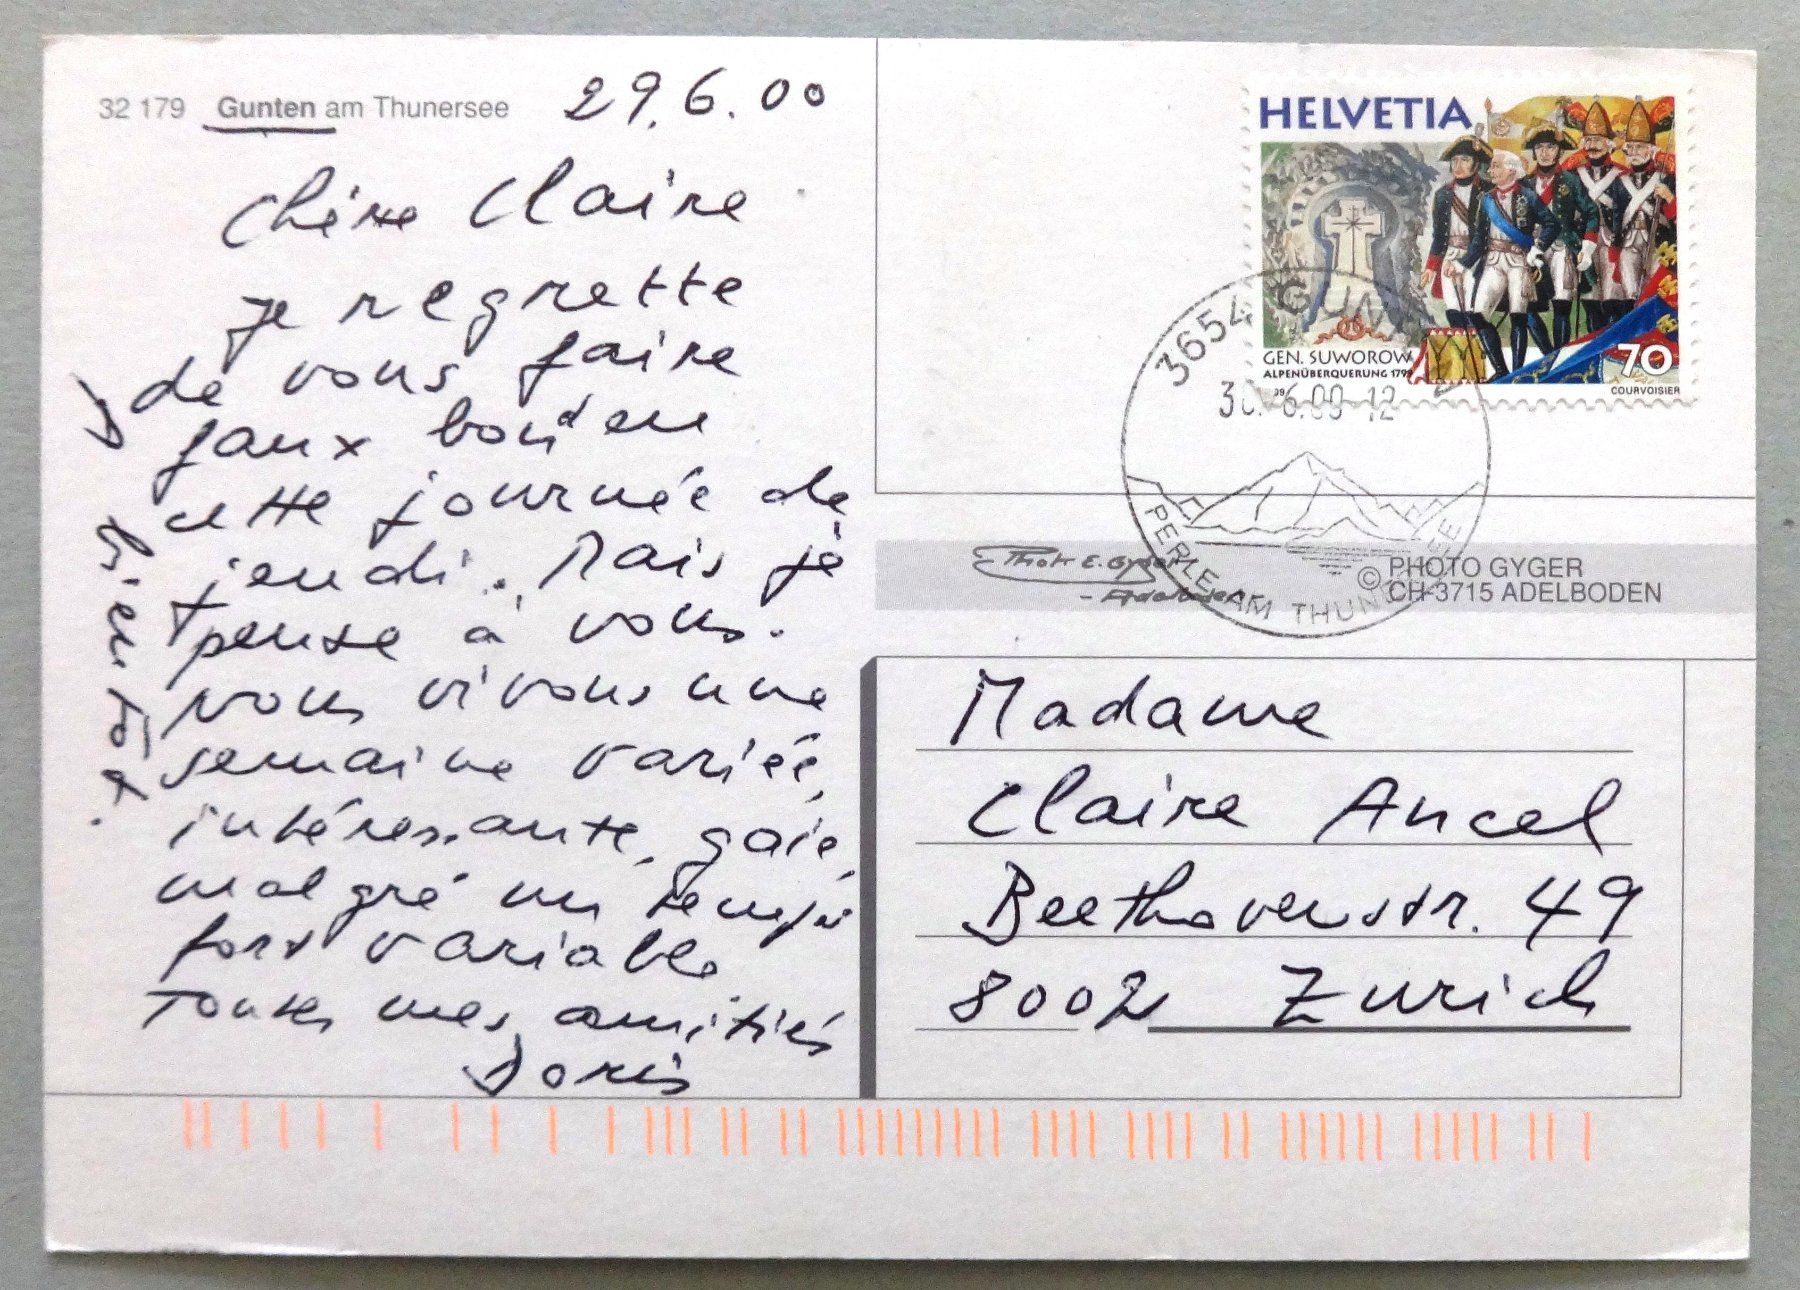 32 179 Gunten am Thunersee
29.6.00
Chère Claire
je regrette
de vous faire
faux bond en
cette journée de
jeudi. Mais je
pense à vous.
Nous vivons une
semaine variée,
intéressante, gaie,
malgré un temps
fort variable
Toutes mes amitiés
Doris
à bientôt.
HELVETIA
GEN. SUWOROW
ALPENÜBERQUERUNG 1799
70
COURVOISIER
3654 GUN
30. 6.00-12
PERLE AM THUNERSEE
Photo E. Gyger
- Adelboden
© PHOTO GYGER
CH-3715 ADELBODEN
Madame
Claire Ancel
Beethovenstr. 49
8002 Zurich